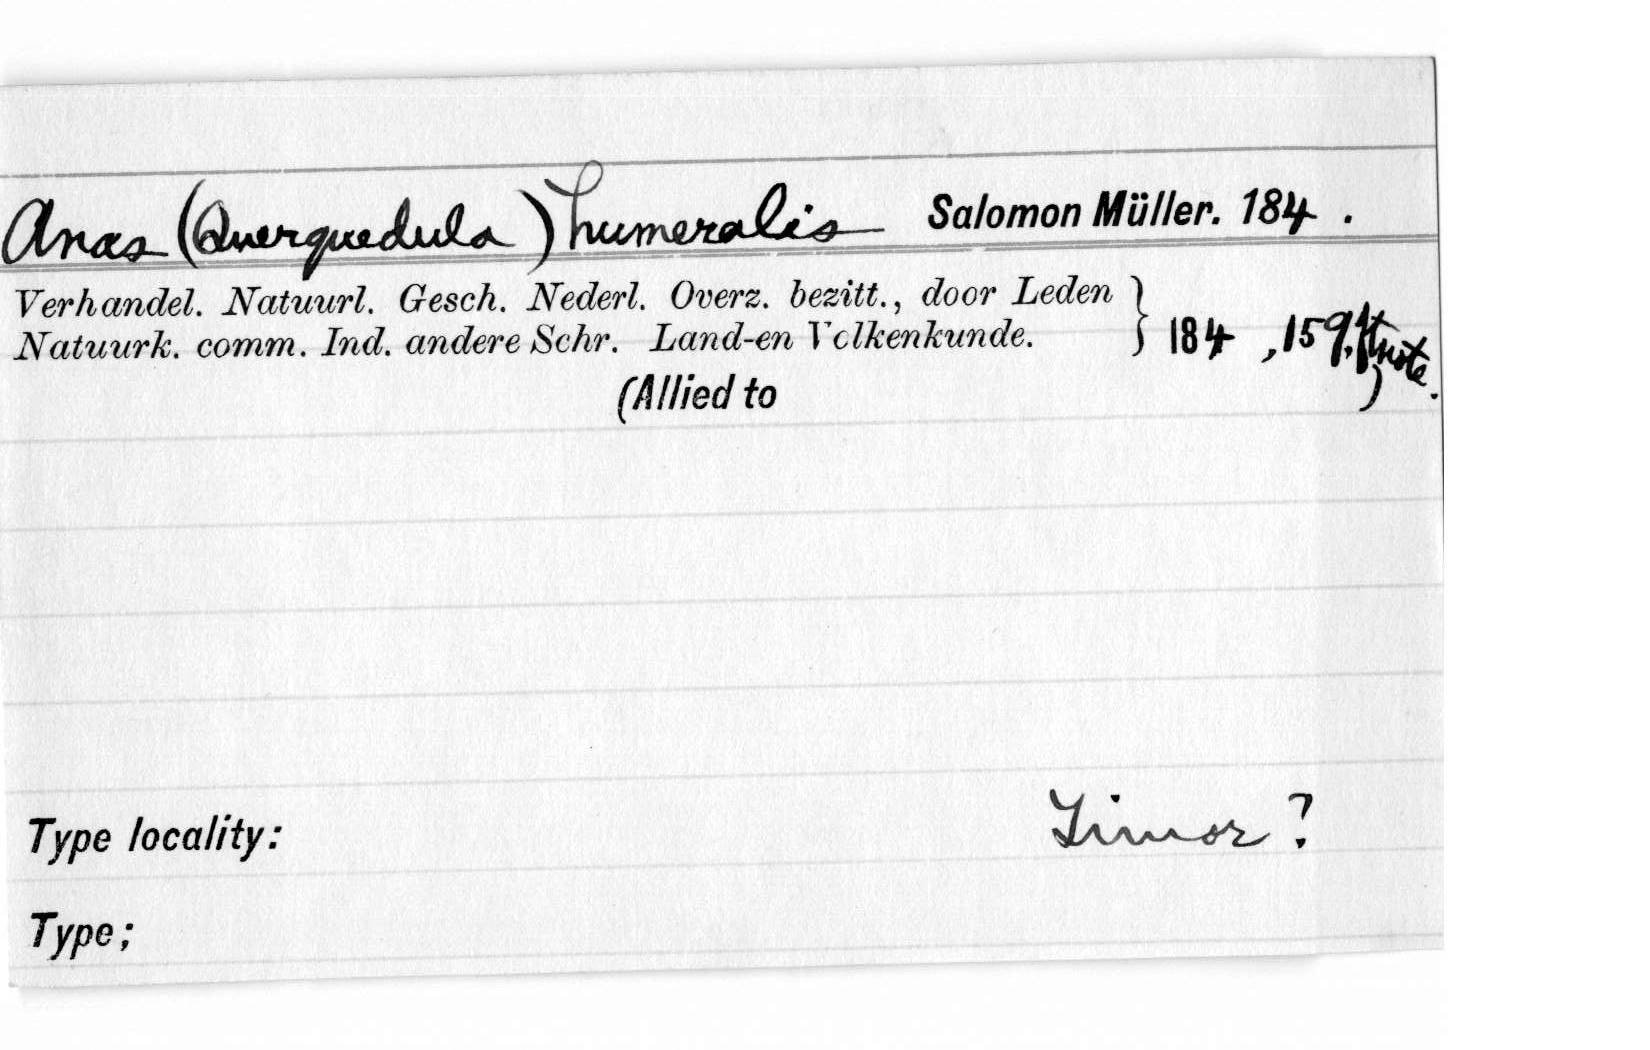 Anas (Querquedula) humeralis Salomon Müller. 184 .
Verhandel. Natuurl. Gesch. Nederl. Overz. bezitt., door Leden
Natuurk. comm. Ind. andere Schr. Land-en Volkenkunde. } 184 , 159, ftnote.
(Allied to )
Type locality: Timor ?
Type;